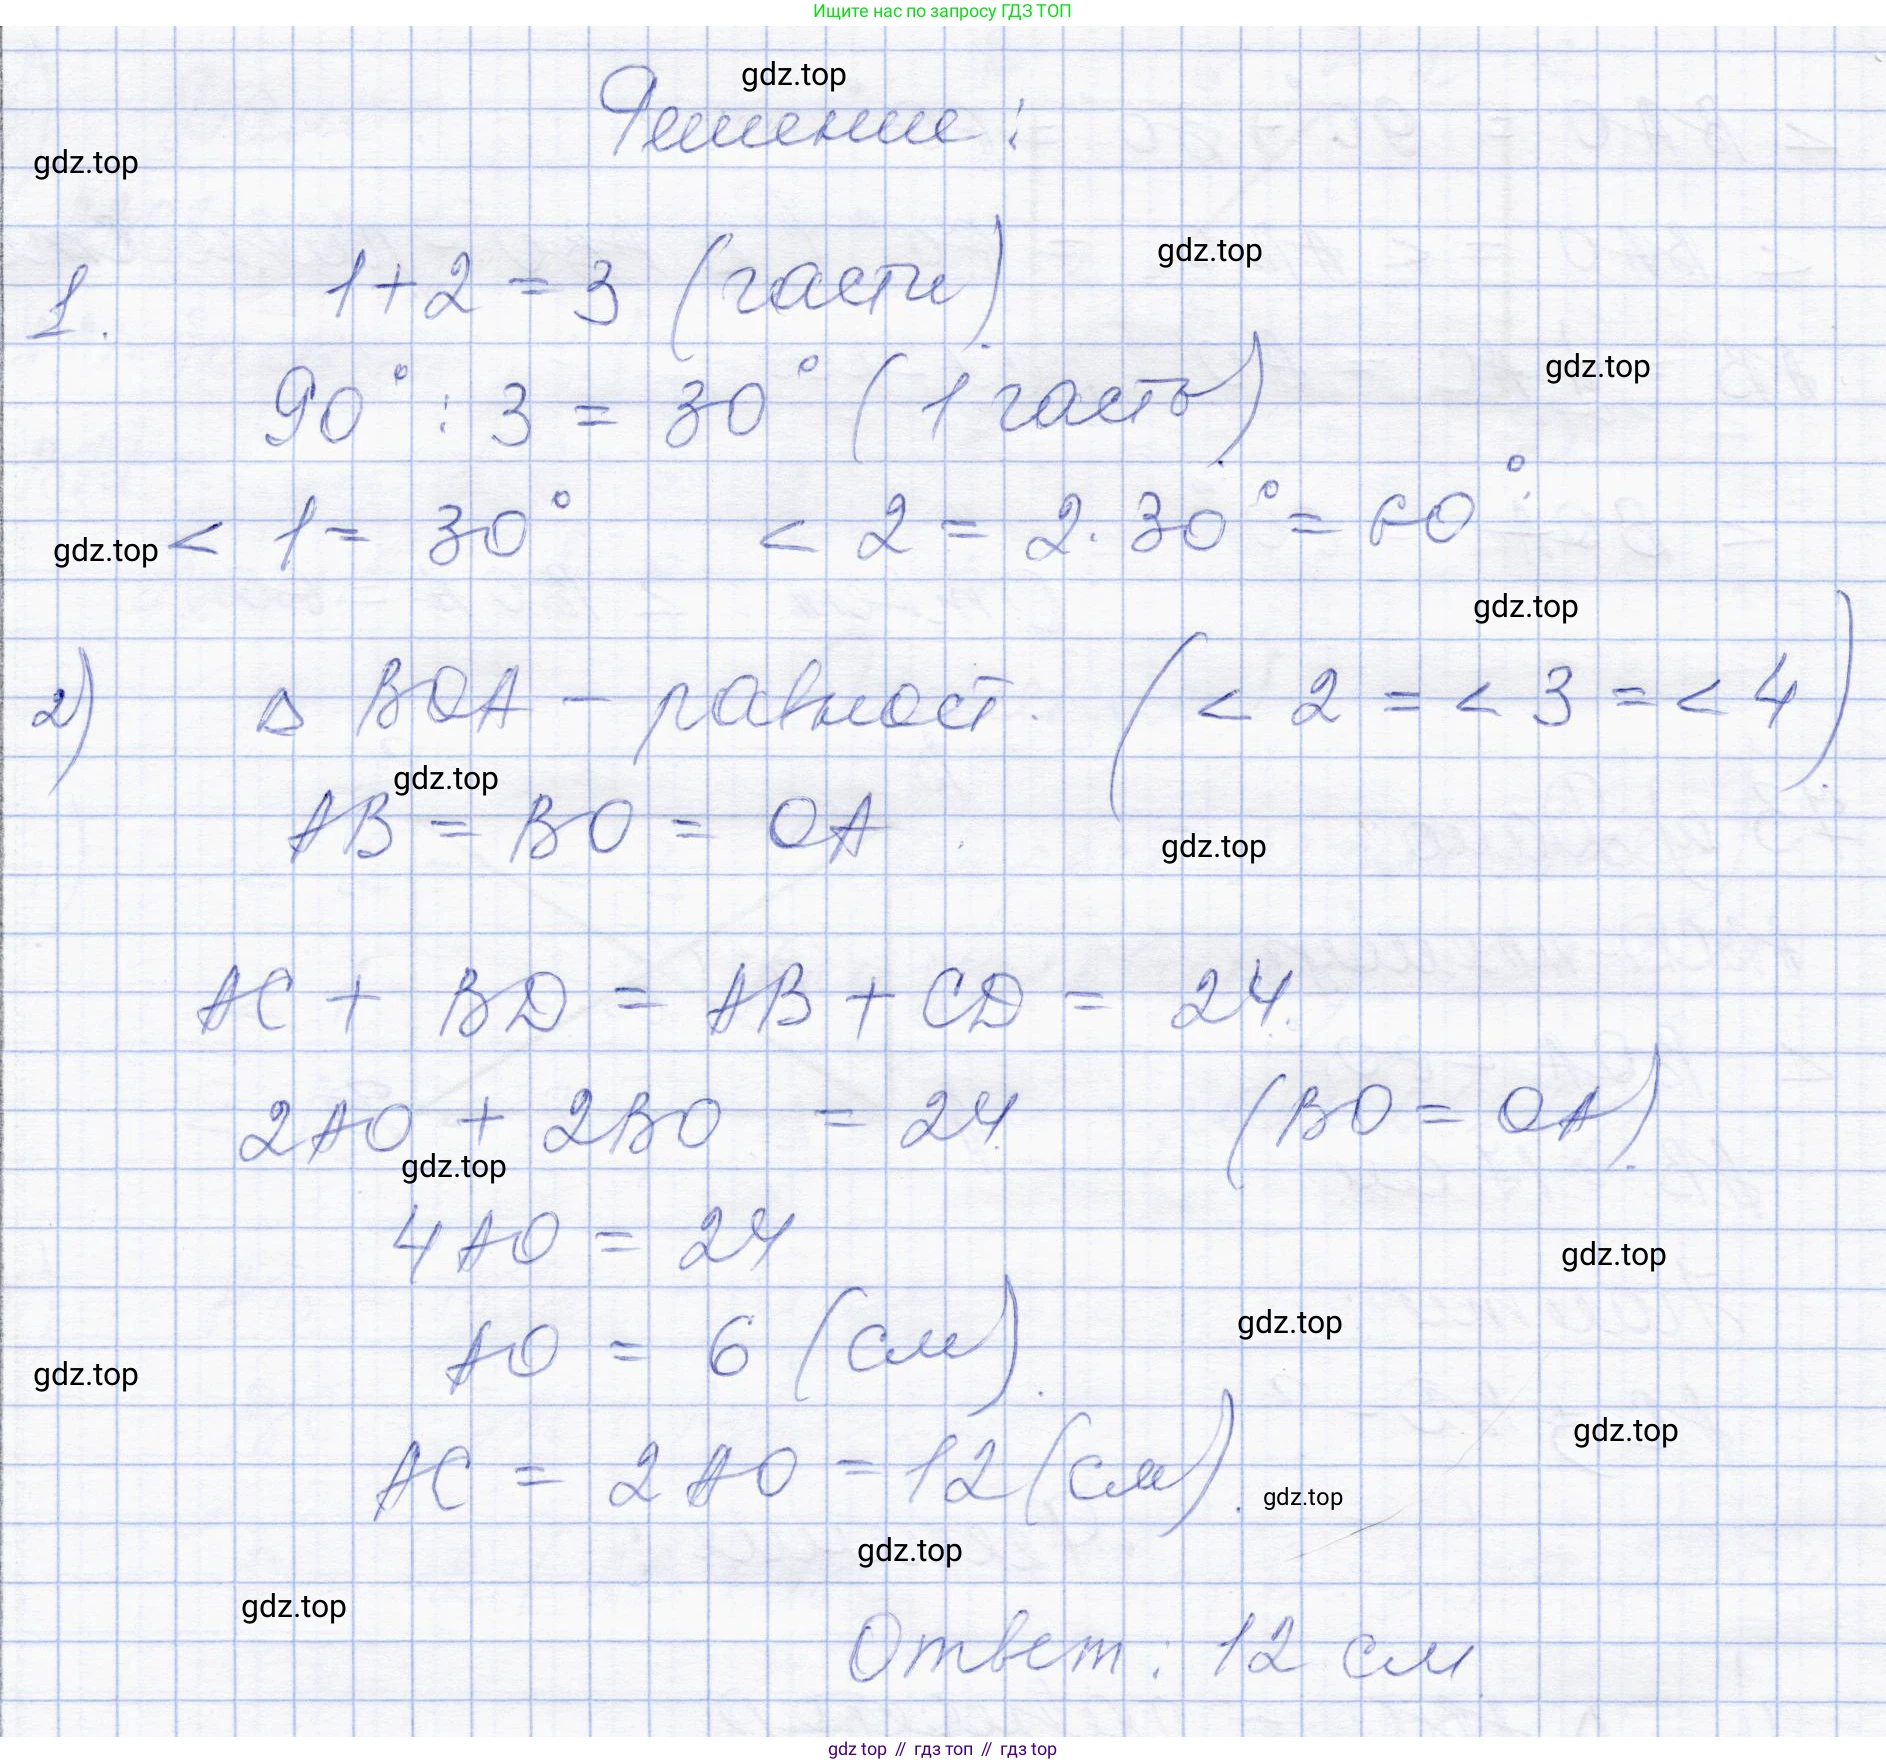 Ищите нас по запросу ГДЗ ТОП
gdz.top
Решение:
gdz.top
gdz.top
1. 1+2=3 (части).
gdz.top
90° : 3 = 30° (1 часть).
gdz.top
< 1 = 30° < 2 = 2·30° = 60°.
gdz.top
2) △ BOA – равност. (< 2 = < 3 = < 4).
gdz.top
AB = BO = OA.
gdz.top
AC + BD = AB + CD = 24.
2AO + 2BO = 24. (BO = OA).
gdz.top
4AO = 24
gdz.top
gdz.top
AO = 6 (см).
gdz.top
gdz.top
AC = 2AO = 12 (см).
gdz.top
gdz.top
gdz.top
Ответ: 12 см.
gdz top // гдз топ // гдз top